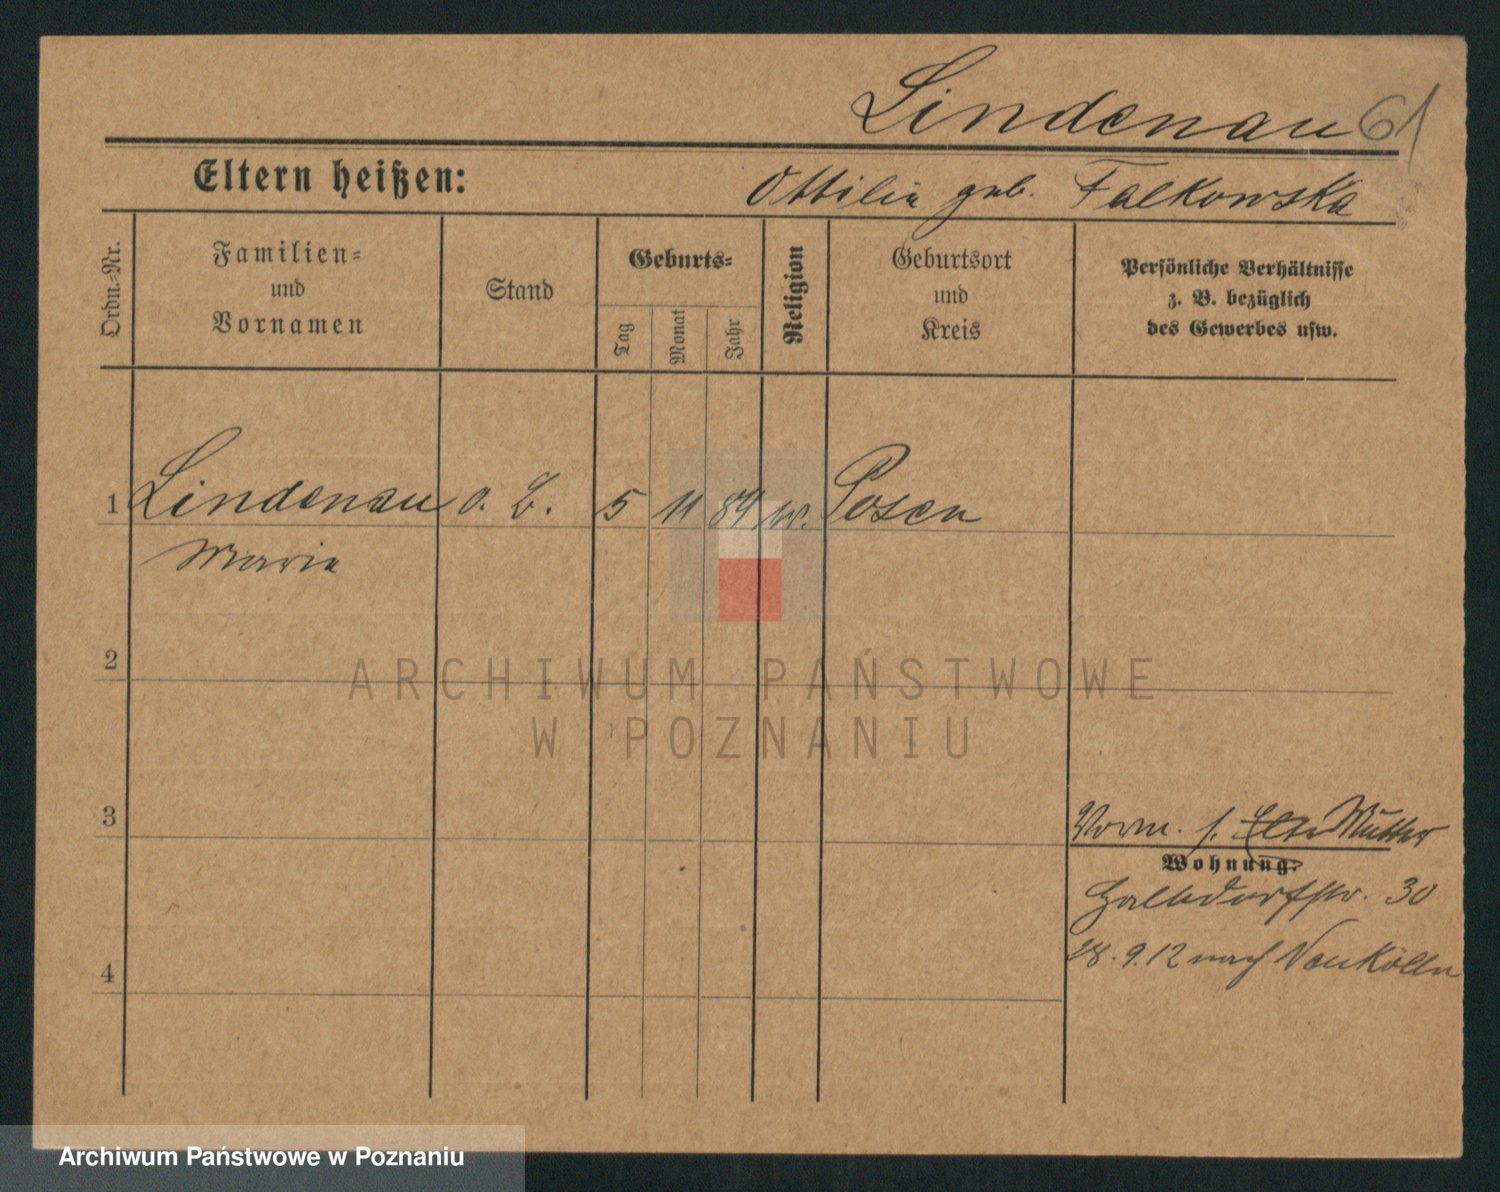 Lindenau 61
Eltern heißen: Ottilie geb. Falkowska
Ordn.-Nr.
Familien-
und
Vornamen
Stand
Geburts-
Tag
Monat
Jahr
Religion
Geburtsort
und
Kreis
Persönliche Verhältnisse
z. B. bezüglich
des Gewerbes usw.
1 Lindenau o. B. 5 11 89 Posen
Marie
2
ARCHIWUM PAŃSTWOWE
W POZNANIU
3
Vorm. s. Mutter
Wohnung:
Halbdorfstr. 30
28.9.12 nach Neukölln
4
Archiwum Państwowe w Poznaniu